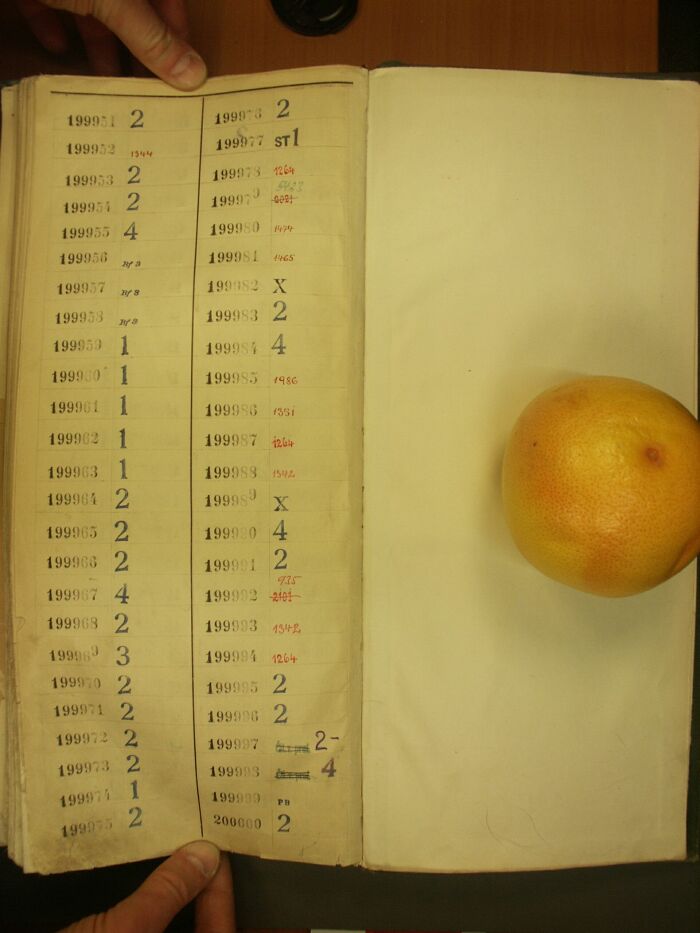 199951 2
199952 1344
199953 2
199954 2
199955 4
199956 Bf S
199957 Bf S
199958 Bf S
199959 1
199960 1
199961 1
199962 1
199963 1
199964 2
199965 2
199966 2
199967 4
199968 2
199969 3
199970 2
199971 2
199972 2
199973 2
199974 1
199975 2
199976 2
199977 ST 1
199978 1264
199979
199980 1474
199981 1465
199982 X
199983 2
199984 4
199985 1986
199986 1331
199987 1264
199988 1342
199989 X
199990 4
199991 2
935
199992 2101
199993 1342
199994 1264
199995 2
199996 2
199997 2-
199998 4
199999 PB
200000 2